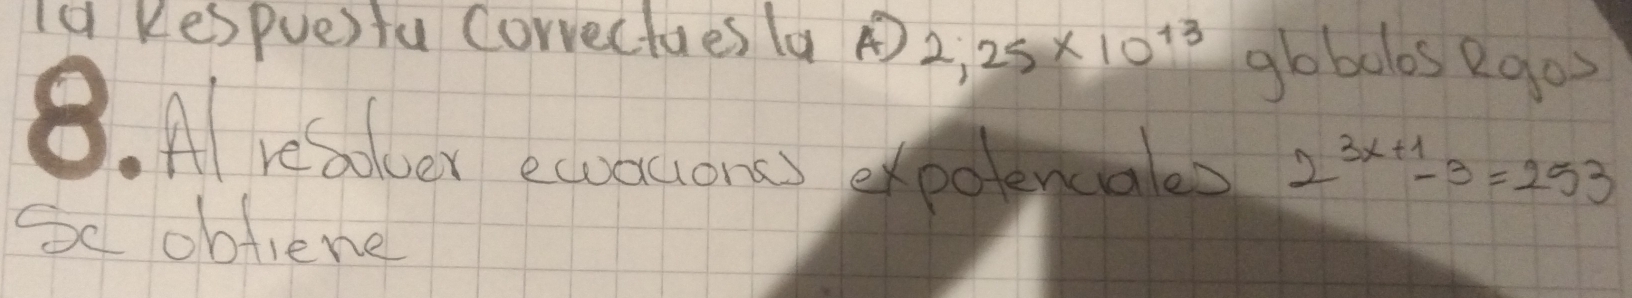 la Respuesta correcta es la A) 2,25 × 10¹³ globulos Rgos
8. Al resolver ecuacionas expotenciales 2³ˣ⁺¹ - 3 = 253
Se obtiene